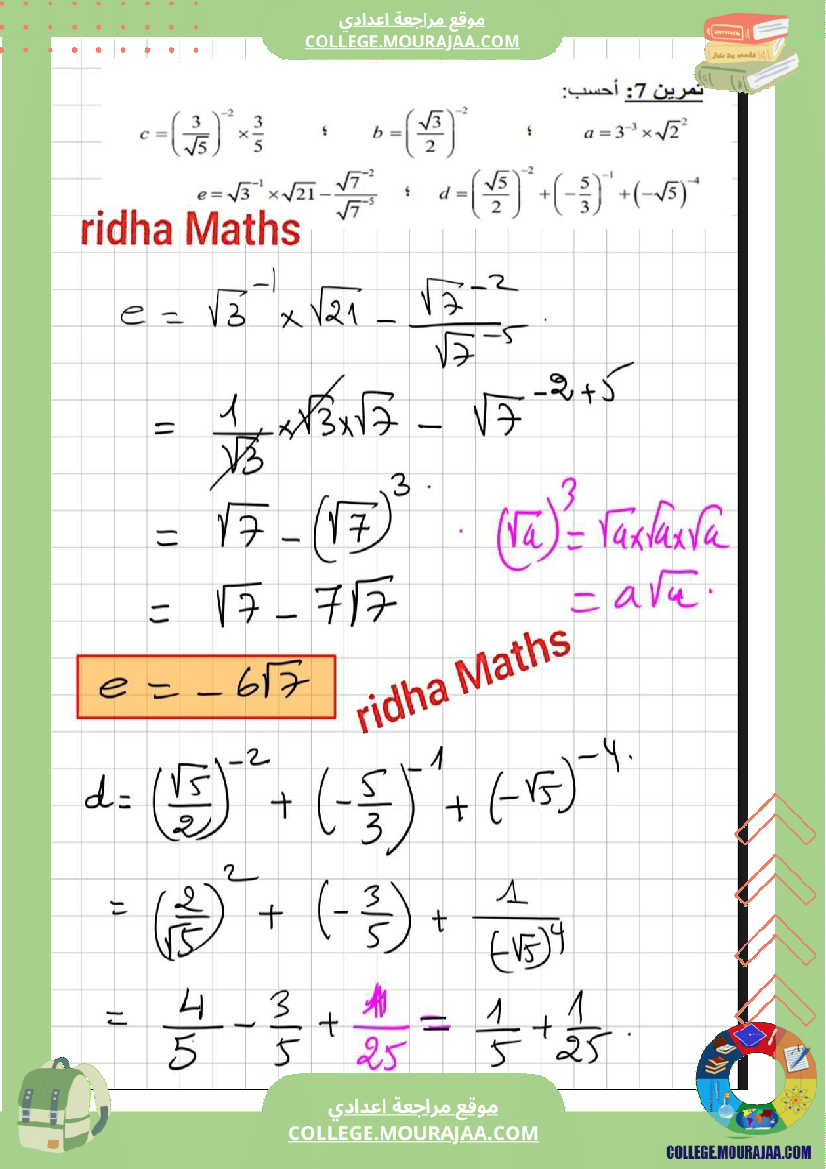 موقع مراجعة اعدادي
COLLEGE.MOURAJAA.COM
تمرين 7: أحسب:
a = 3⁻³ × √2² ؛ b = (√3/2)⁻² ؛ c = (3/√5)⁻² × 3/5
d = (√5/2)⁻² + (-5/3)⁻¹ + (-√5)⁻⁴ ؛ e = √3⁻¹ × √21 - √7⁻²/√7⁻⁵
ridha Maths
e = √3⁻¹ × √21 - √7⁻²/√7⁻⁵
= 1/√3 × √3 × √7 - √7⁻²⁺⁵
= √7 - (√7)³ . (√a)³ = √a×√a×√a
= √7 - 7√7 = a√a.
e = -6√7
ridha Maths
d = (√5/2)⁻² + (-5/3)⁻¹ + (-√5)⁻⁴.
= (2/√5)² + (-3/5) + 1/(-√5)⁴
= 4/5 - 3/5 + 1/25 = 1/5 + 1/25.
موقع مراجعة اعدادي
COLLEGE.MOURAJAA.COM
COLLEGE.MOURAJAA.COM